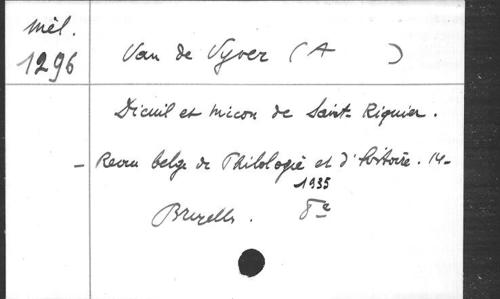 Mél.
1296
Van de Vyver (A )
Dicuil et Micon de Saint-Riquier.
- Revue belge de Philologie et d'histoire. 14-
1935
Bruxelles. 8°